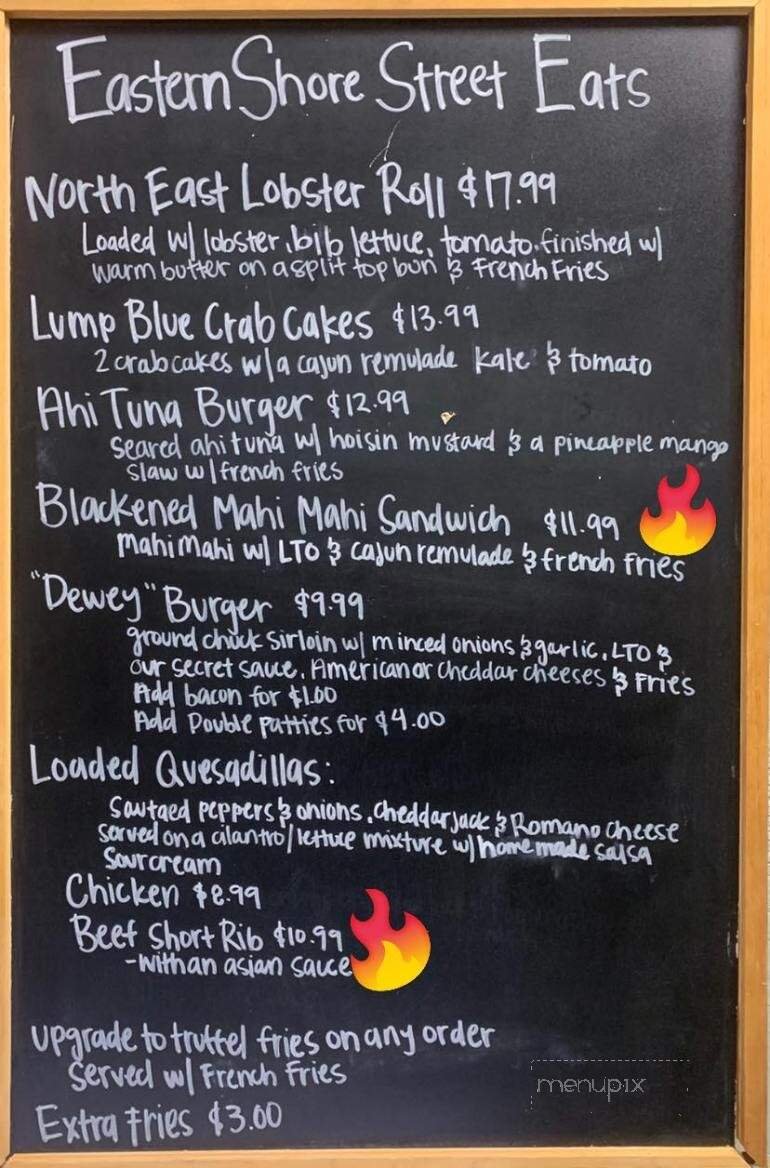 Eastern Shore Street Eats
North East Lobster Roll $17.99
Loaded w/ lobster, bib lettuce, tomato, finished w/
warm butter on a split top bun & French Fries
Lump Blue Crab Cakes $13.99
2 crab cakes w/ a cajun remulade kale & tomato
Ahi Tuna Burger $12.99
seared ahi tuna w/ hoisin mustard & a pineapple mango
slaw w/ french fries
Blackened Mahi Mahi Sandwich $11.99
mahi mahi w/ LTO & cajun remulade & french fries
"Dewey" Burger $9.99
ground chuck sirloin w/ minced onions & garlic, LTO &
our secret sauce, American or cheddar cheeses & Fries
Add bacon for $1.00
Add Double patties for $4.00
Loaded Quesadillas:
Sawtaed peppers & onions, cheddar jack & Romano cheese
served on a cilantro/lettuce mixture w/ homemade salsa
sour cream
Chicken $8.99
Beef Short Rib $10.99
-with an asian sauce
upgrade to truffel fries on any order
served w/ French Fries
Extra Fries $3.00
menupix